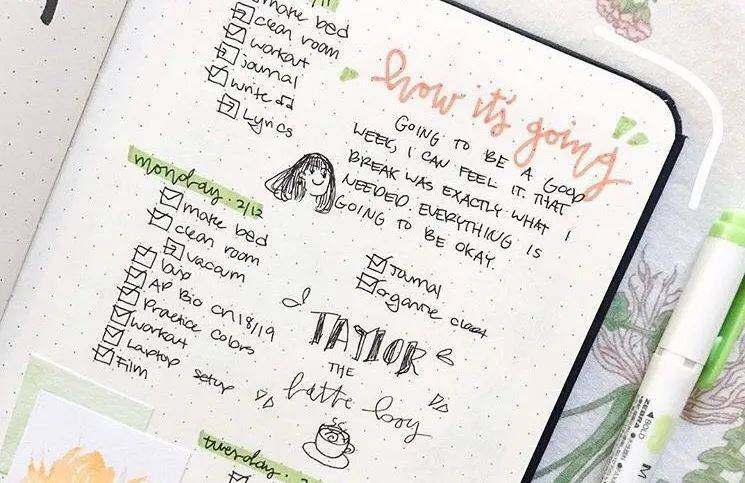 make bed
clean room
workout
journal
write
Lyrics
how it's going
GOING TO BE A GOOD
WEEK, I CAN FEEL IT. THAT
BREAK WAS EXACTLY WHAT I
NEEDED. EVERYTHING IS
GOING TO BE OKAY.
monday. 2/12
make bed
clean room
vacuum
AP Bio Ch 18/19
Practice colors
workout
Laptop setup
Film
Journal
organize closet
TAYLOR
THE
latte boy
tuesday. 2
ZEBRA
BOLD
M